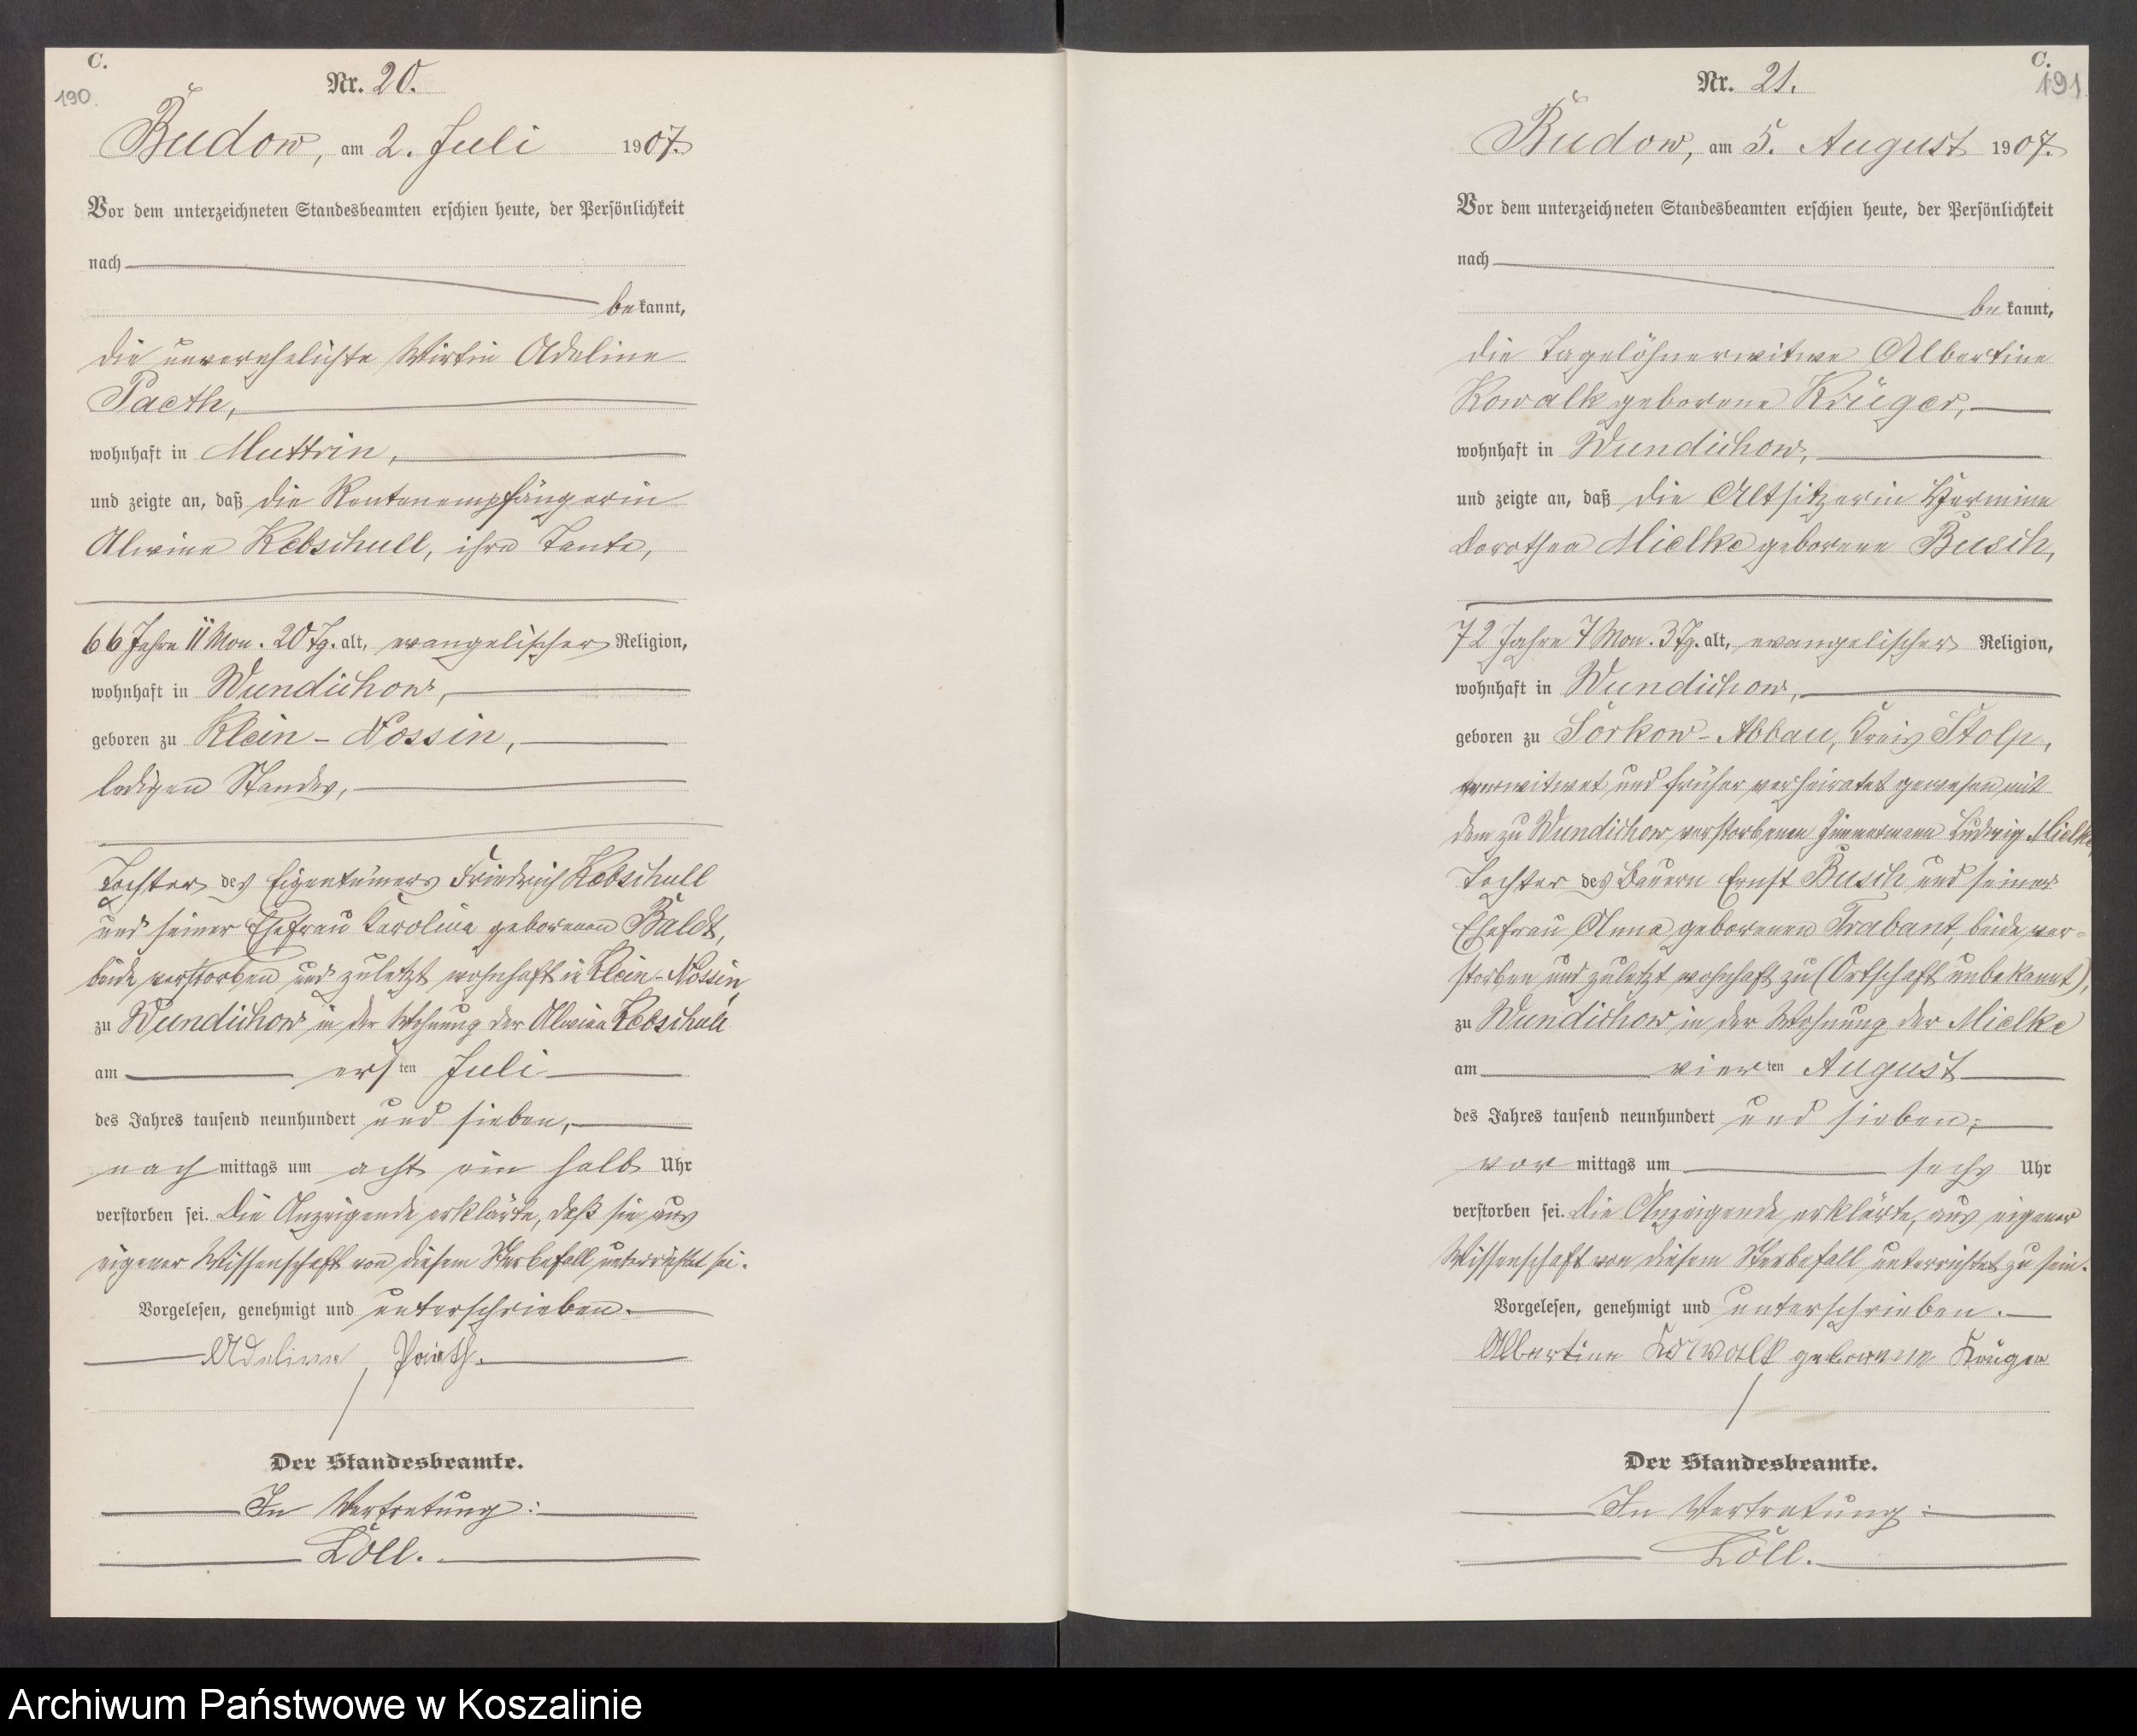 C.
190.
Nr. 20.
Budow, am 2. Juli 1907.
Vor dem unterzeichneten Standesbeamten erschien heute, der Persönlichkeit
nach
bekannt,
die unverehelichte Wirtin Adeline
Paeth,
wohnhaft in Muttrin,
und zeigte an, daß die Rentenempfängerin
Alwine Kebschull, ihre Tante,
66 Jahre 11 Mon. 20 Tg. alt, evangelischer Religion,
wohnhaft in Wundichow,
geboren zu Klein-Nossin,
ledigen Standes,
Tochter des Eigentümers Friedrich Kebschull
und seiner Ehefrau Karoline geborenen Baldt,
beide verstorben und zuletzt wohnhaft in Klein-Nossin,
zu Wundichow in der Wohnung der Alwine Kebschull
am ersten Juli
des Jahres tausend neunhundert und sieben,
nachmittags um acht ein halb Uhr
verstorben sei. Die Anzeigende erklärte, daß sie aus
eigener Wissenschaft von diesem Sterbefall unterrichtet sei.
Vorgelesen, genehmigt und unterschrieben.
Adeline Paeth.
Der Standesbeamte.
In Vertretung:
Löll.
C.
191
Nr. 21.
Budow, am 5. August 1907.
Vor dem unterzeichneten Standesbeamten erschien heute, der Persönlichkeit
nach
bekannt,
die Tagelöhnerwitwe Albertine
Kowalk geborene Krüger,
wohnhaft in Wundichow,
und zeigte an, daß die Altsitzerin Hermine
Dorothea Mielke geborene Busch,
72 Jahre 7 Mon. 3 Tg. alt, evangelischer Religion,
wohnhaft in Wundichow,
geboren zu Sorkow-Abbau, Kreis Stolp,
verwitwet und früher verheiratet gewesen mit
dem zu Wundichow verstorbenen Zimmermann Ludwig Mielke,
Tochter des Bauern Ernst Busch und seiner
Ehefrau Anna geborenen Trabant, beide ver-
storben und zuletzt wohnhaft zu (Ortschaft unbekannt),
zu Wundichow in der Wohnung der Mielke
am vierten August
des Jahres tausend neunhundert und sieben,
vormittags um sechs Uhr
verstorben sei. Die Anzeigende erklärte, aus eigener
Wissenschaft von diesem Sterbefall unterrichtet zu sein.
Vorgelesen, genehmigt und unterschrieben.
Albertine Kowalk geborene Krüger
Der Standesbeamte.
In Vertretung:
Löll.
Archiwum Państwowe w Koszalinie